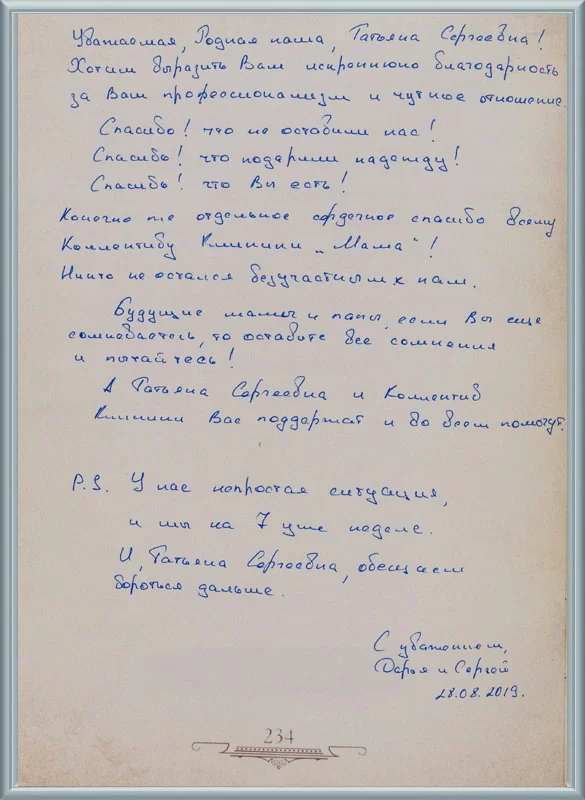 Уважаемая, Родная наша, Татьяна Сергеевна!
Хотим выразить Вам искреннюю благодарность
за Ваш профессионализм и чуткое отношение.
Спасибо! что не оставили нас!
Спасибо! что подарили надежду!
Спасибо! что Вы есть!
Конечно же отдельное сердечное спасибо всему
Коллективу Клиники „Мама“!
Никто не остался безучастным к нам.
Будущие мамы и папы, если Вы еще
сомневаетесь, то оставьте все сомнения
и пытайтесь!
А Татьяна Сергеевна и Коллектив
Клиники Вас поддержат и во всем помогут.
P.S. У нас непростая ситуация,
и мы на 7 уже неделе.
И, Татьяна Сергеевна, обещаем
бороться дальше.
С уважением,
Дарья и Сергей
28.08.2019.
234